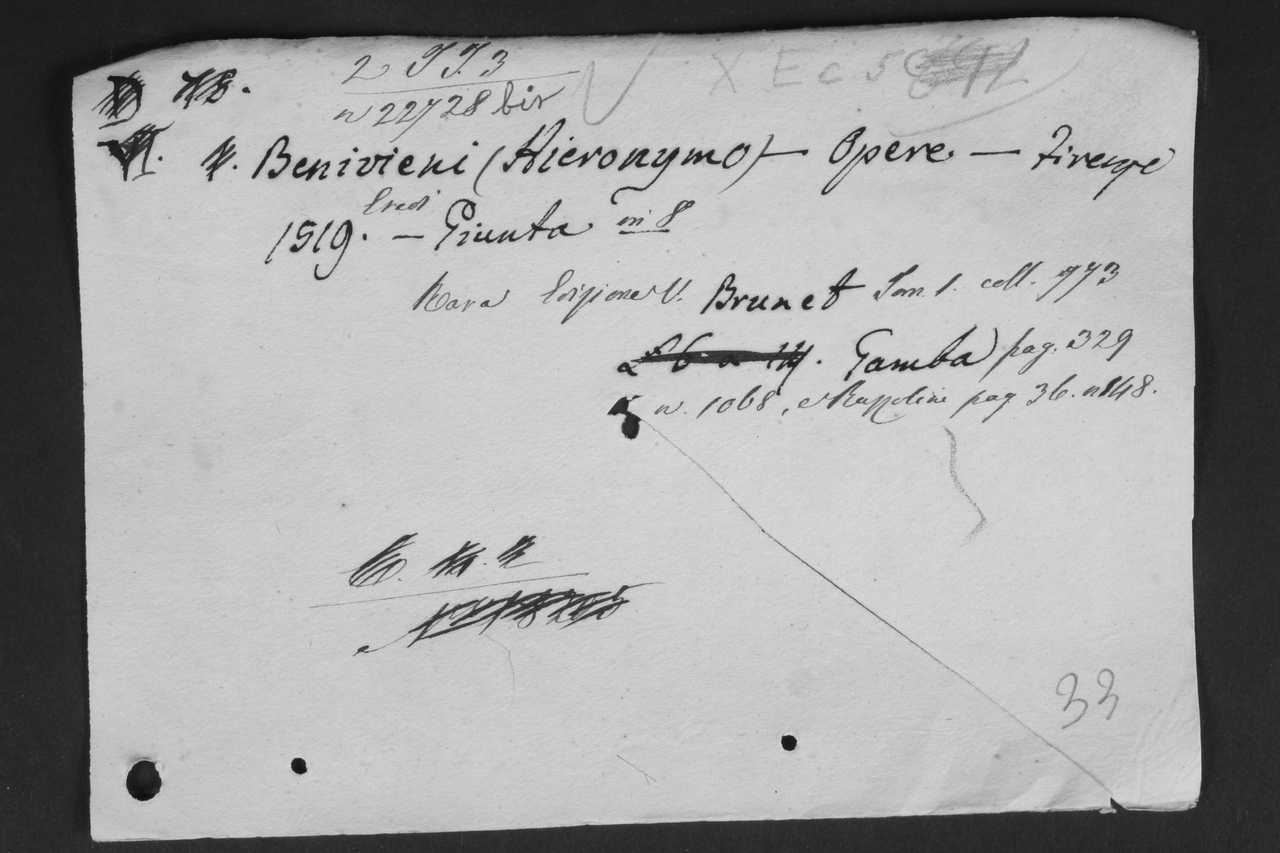 2 J.J. 3
n 22728 bis
X E c 5
Benivieni (Hieronymo) — Opere — Firenze
1519. — Eredi Giunta in 8
Rara Edizione V. Brunet Tom. 1. coll. 773
Gamba pag. 329
n. 1068, e Razzolini pag 36. n 148.
33